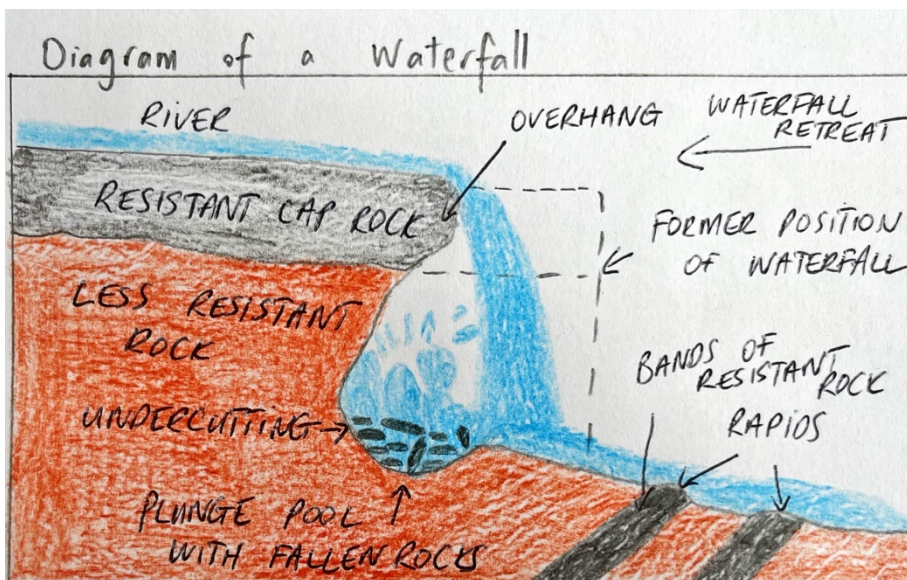 Diagram of a Waterfall
RIVER
OVERHANG
WATERFALL
RETREAT
RESISTANT CAP ROCK
FORMER POSITION
OF WATERFALL
LESS RESISTANT
ROCK
BANDS OF
RESISTANT
ROCK
RAPIDS
UNDERCUTTING
PLUNGE POOL
WITH FALLEN ROCKS